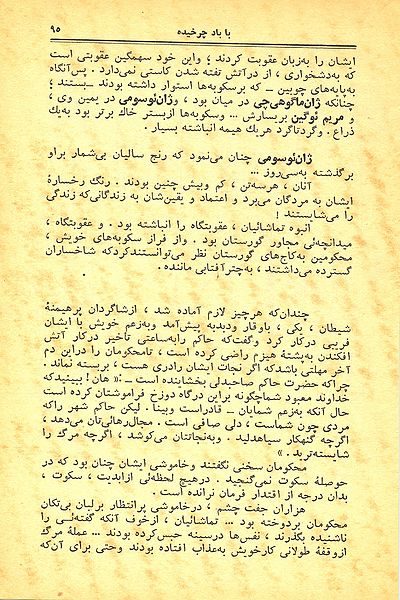 با باد چرخیده
۹۵
ایشان را به‌زبان عقوبت کردند؛ و این خود سهمگین عقوبتی است
که به‌دشخواری، از درآتش تفته شدن کاستی نمی‌دارد. پس‌آنگاه
به‌پایه‌های چوبین ـ که برسکوبه‌ها استوار داشته بودند ـ بستند؛
چنانکه ژان‌ماگوهی‌چی در میان بود، و ژان‌نوسومی در یمین وی،
و مریم نوگین بریسارش ... و سکوبه‌ها ازبستر خاک برتر بود به‌یك
ذراع. و گرد تا گرد هر یك هیمه انباشته بسیار.
ژان‌نوسومی چنان می‌نمود که رنج سالیان بی‌شمار براو
برگذشته به‌سی‌روز ...
آنان، هرسه‌تن، کم وبیش چنین بودند. رنگ رخسارهٔ
ایشان به مردگان می‌برد و اعتماد و یقین‌شان به زندگانی‌که زندگی
را می‌شایستند!
انبوه تماشائیان، عقوبتگاه را انباشته بود. و عقوبتگاه،
میدانچه‌ئی مجاور گورستان بود. واز فراز سکوبه‌های خویش،
محکومین به‌کاج‌های گورستان نظر می‌توانستندکردکه شاخساران
گسترده می‌داشتند، به‌چترآفتابی مانده.
چندان‌که هرچیز لازم آماده شد، ازشاگردان پرهیمنهٔ
شیطان، یکی، باوقار ودبدبه پیش‌آمد وبه‌زعم خویش با ایشان
فریبی درکار کرد وگفت‌که حاکم رابه‌ساعتی تاخیر درکار آتش
افکندن به‌پشتهٔ هیزم راضی کرده است، تامحکومان را دراین دم
آخر مهلتی باشدکه اگر نجات ایشان رادری هست، بربسته نماند.
چراکه حضرت حاکم صاحبدلی بخشاینده است ـ:« هان! ببینیدکه
خداوند معبود شماچگونه براین درگاه دوزخ فراموشتان کرده است
حال آنکه به‌زعم شمایان ـ قادراست وبینا. لیکن حاکم شهر راکه
مردی چون شماست، دلی صافی است. مجال‌رهائی‌تان می‌دهد،
اگرچه گنهکار سیاهدلید. وبه‌نجاتتان می‌کوشد، اگرچه مرگ را
شایسته‌ترید.»
محکومان سخنی نگفتند وخاموشی ایشان چنان بود که در
حوصلهٔ سکوت نمی‌گنجید. درهیچ لحظه‌ئی ازابدیت، سکوت،
بدان درجه از اقتدار فرمان نرانده است.
هزاران جفت چشم، درخاموشی پرانتظار برلبان بی‌تکان
محکومان بردوخته بود ... تماشائیان، ازخوف آنکه گفته‌ئـی را
ناشنیده بگذرند، نفس‌ها درسینه حبس‌کرده بودند... عملهٔ مرگ
ازوقفهٔ طولانی کارخویش به‌عذاب افتاده بودند وحتی برای آن‌که